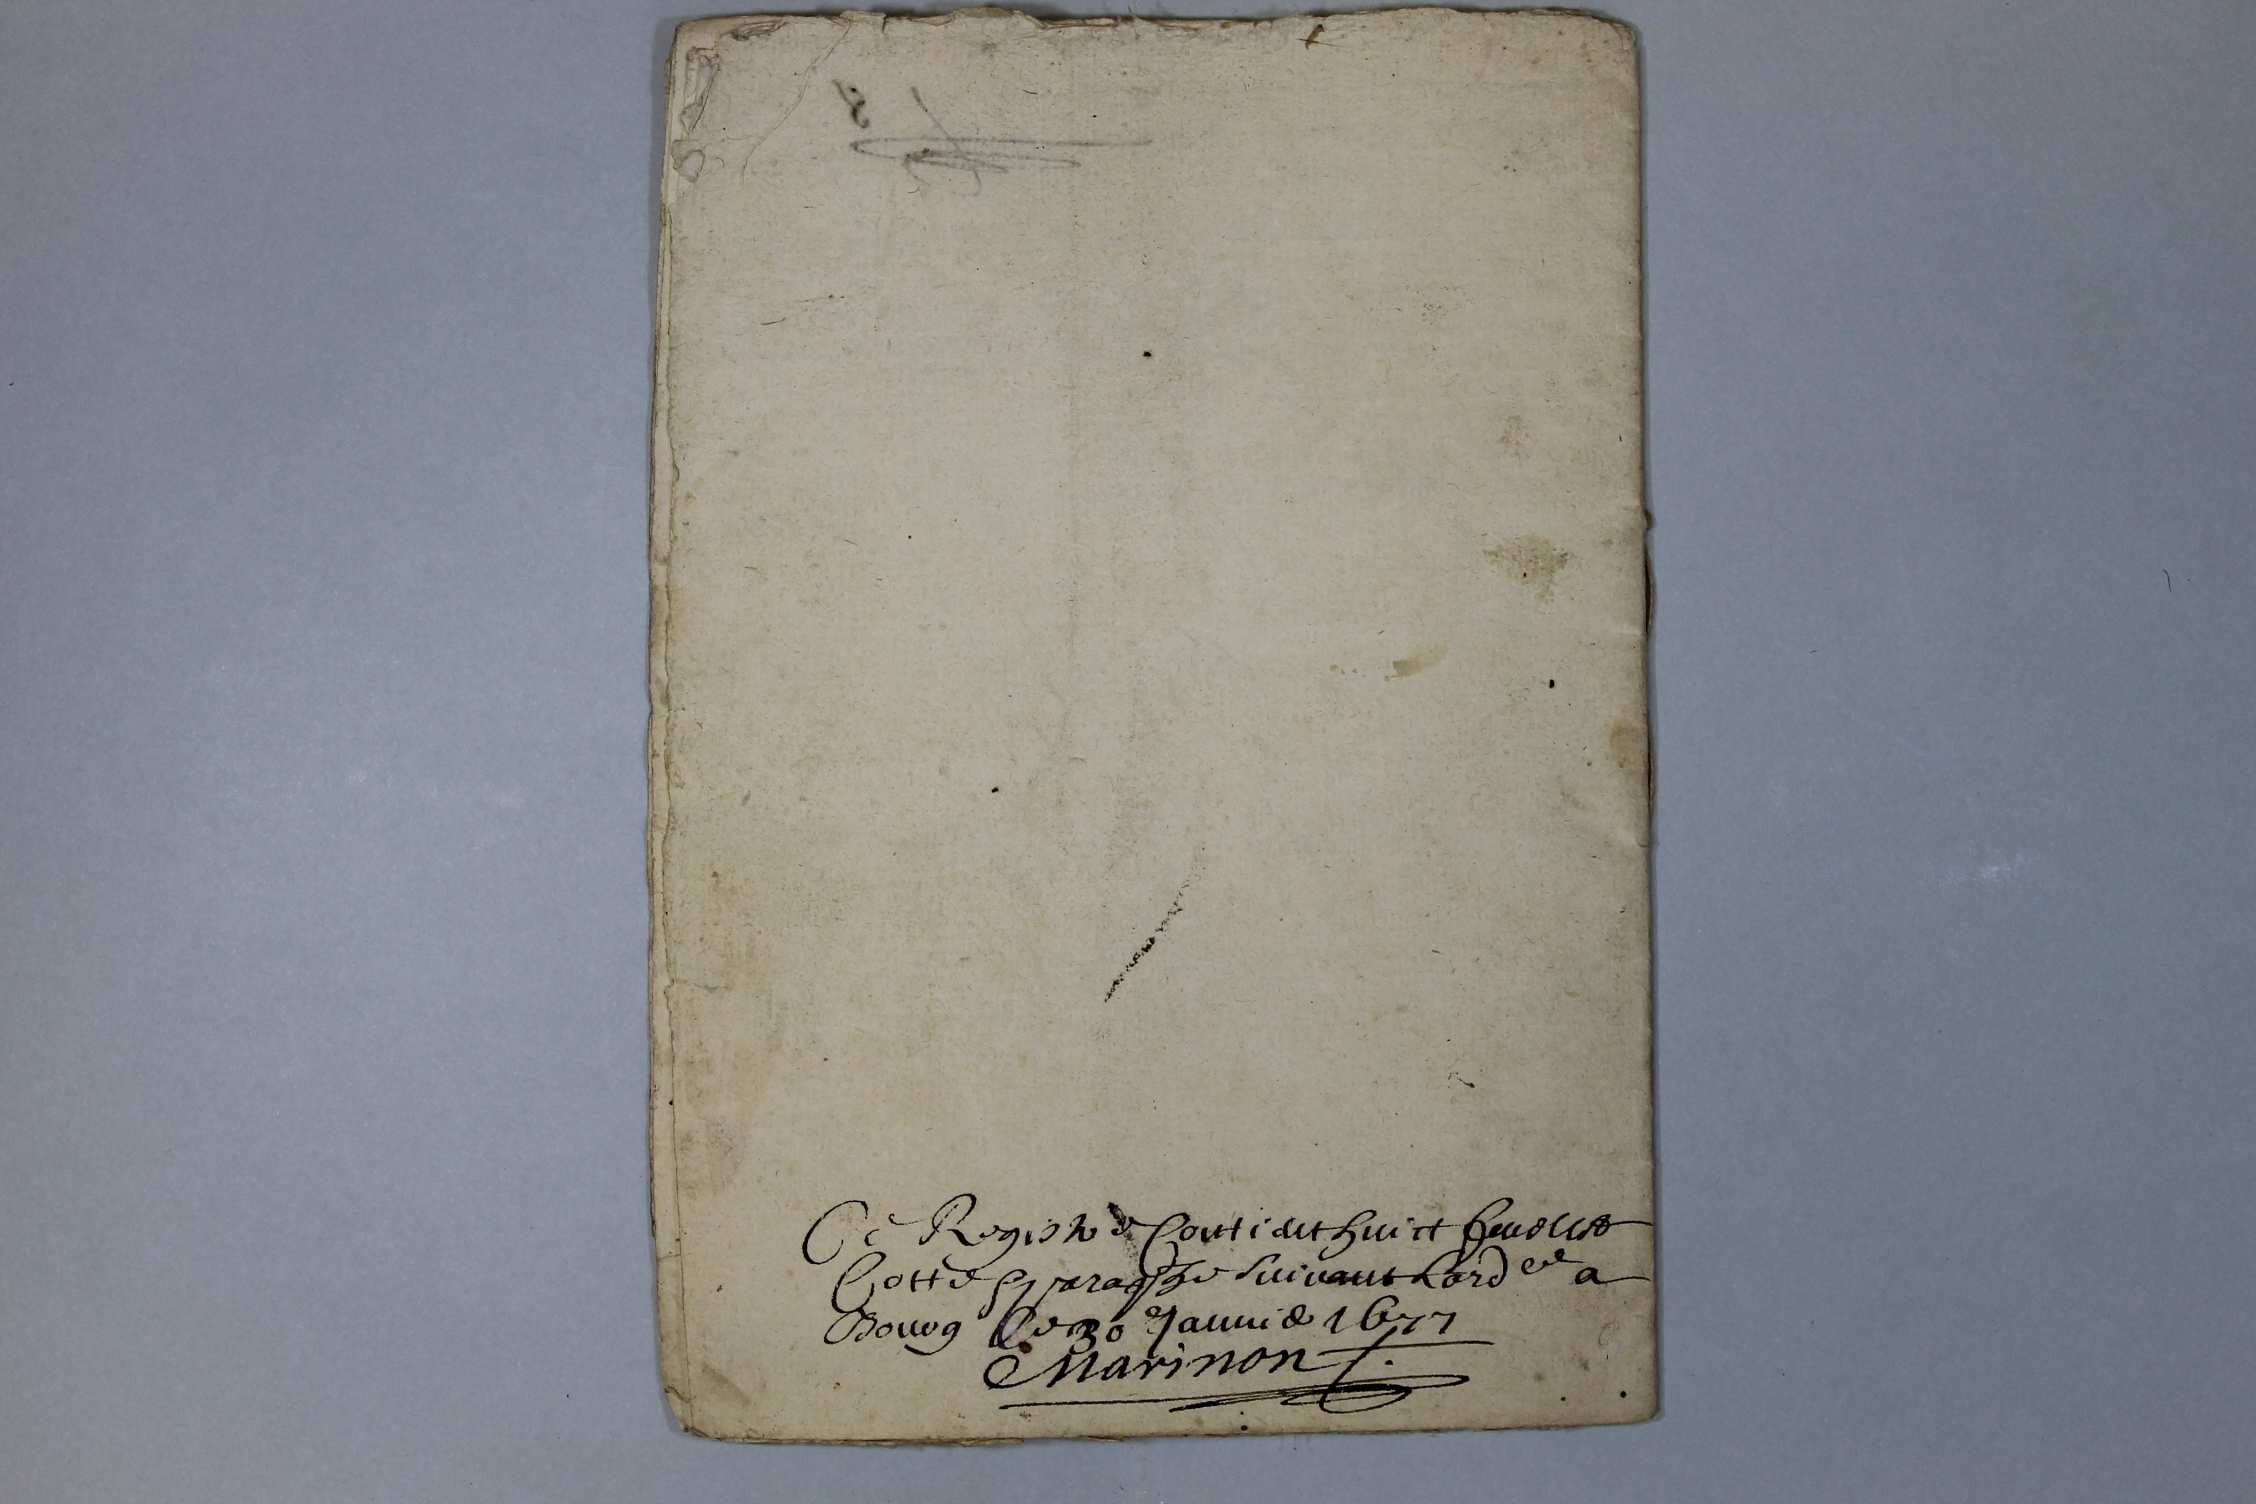 Ce Registre Contient huict feuillets
Cotté & paraphé Suivant Lordce a
Bourg Le 30 Janvier 1677
Marinon